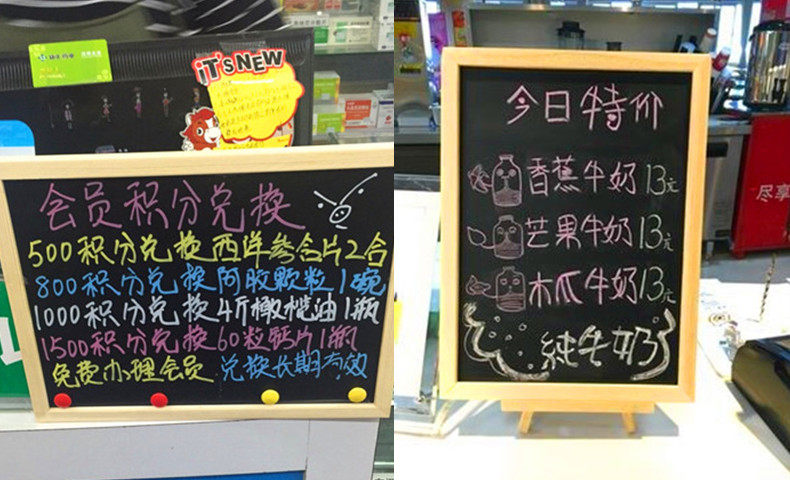 iT's NEW
会员积分兑换
500积分兑换西洋参含片2合
800积分兑换阿胶颗粒1碗
1000积分兑换4斤橄榄油1瓶
1500积分兑换60粒钙片1瓶
免费办理会员 兑换长期有效
今日特价
香蕉牛奶13元
芒果牛奶13元
木瓜牛奶13元
纯牛奶
尽享